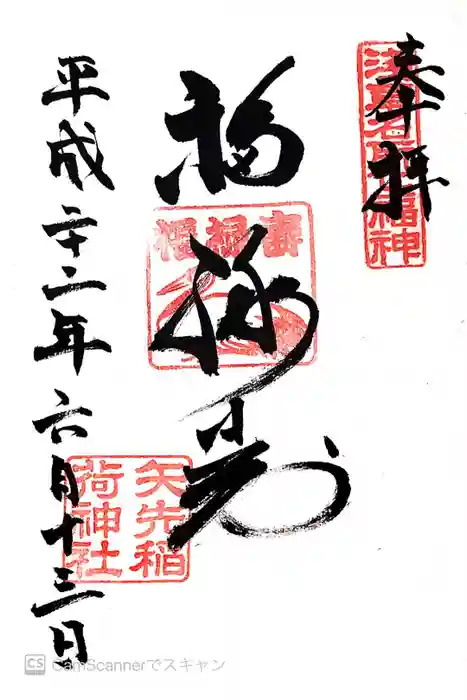 奉拝
浅草名所七福神
福禄寿
福禄壽
矢先稲荷神社
平成二十二年六月十三日
CS CamScannerでスキャン